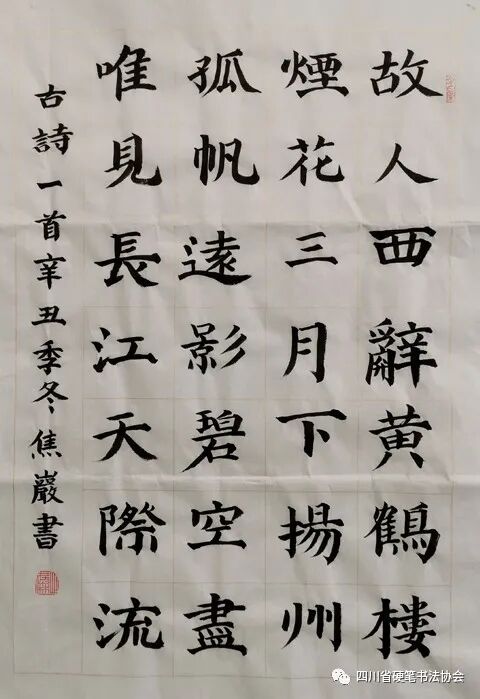 故人西辭黄鶴樓
煙花三月下揚州
孤帆遠影碧空盡
唯見長江天際流
古詩一首辛丑季冬焦巖書
四川省硬笔书法协会